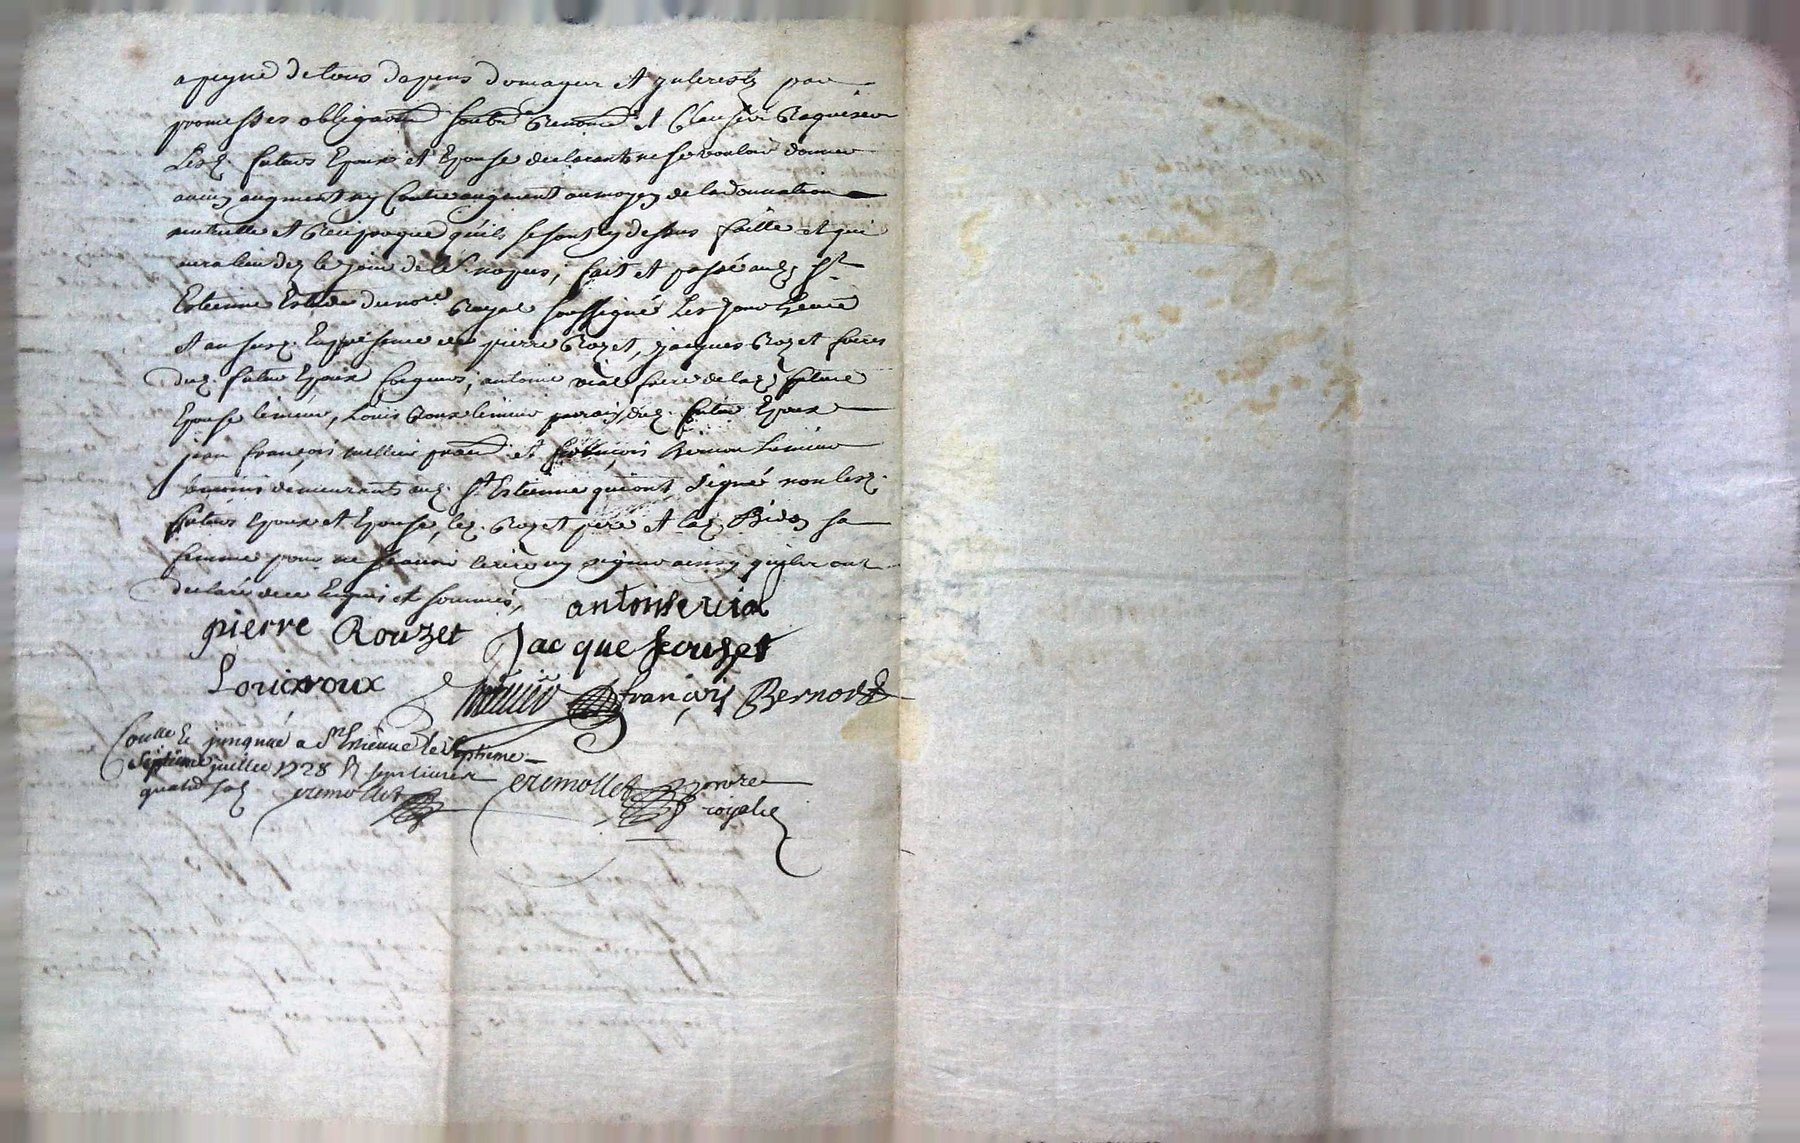 a peyne de tous depens domages et interests par
promesses obligaõn soubmõn Renonciõn et Clauses Requises
Lesd. futurs Epoux et Epouse declarants ne se vouloir donner
aucun augment ny Contre augment au moyen de la donnation
mutuelle et Reciproque quils se sont cy dessus faitte et qui
aura lieu dez le jour de la nopces, fait et passé aud St
Estienne Estude du nore Royal soussigné Les jour heure
et an susd. En presence de pierre Rozet, jacques Rozet freres
dud. futur Epoux, antoine vial frere de lad future
Epouse Louis Roux dud. futur Epoux
jean françois et françois
demeurants aud. St Estienne qui ont signé non lesd.
futurs Epoux et Epouse, led. Rozet pere et lad. sa
femme pour ne sçavoir Ecrire ny signer ainsy quils ont
declaré de ce Enquis et sommés,
antonse vial
pierre Rouzet Jacque Rouzet
Louis roux
françois Bernord
Conlle Et jnsignué a St Estienne le septieme
Septieme juillet 1728 R sept livres
quatre sols eremollet
eremollet nore
royal